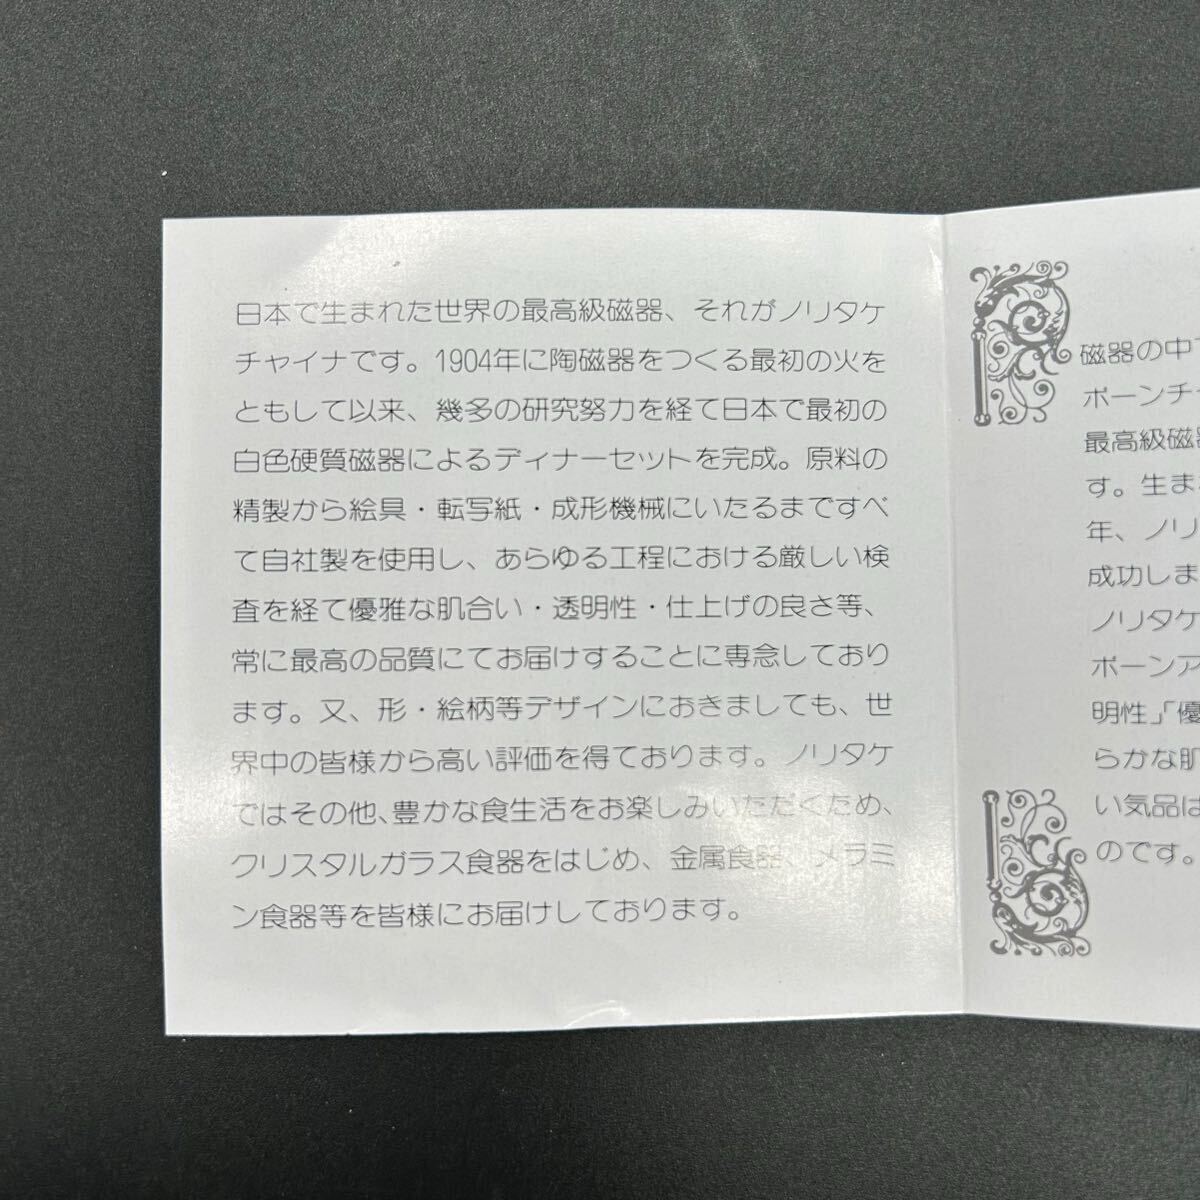 日本で生まれた世界の最高級磁器、それがノリタケ
チャイナです。1904年に陶磁器をつくる最初の火を
ともして以来、幾多の研究努力を経て日本で最初の
白色硬質磁器によるディナーセットを完成。原料の
精製から絵具・転写紙・成形機械にいたるまですべ
て自社製を使用し、あらゆる工程における厳しい検
査を経て優雅な肌合い・透明性・仕上げの良さ等、
常に最高の品質にてお届けすることに専念しており
ます。又、形・絵柄等デザインにおきましても、世
界中の皆様から高い評価を得ております。ノリタケ
ではその他、豊かな食生活をお楽しみいただくため、
クリスタルガラス食器をはじめ、金属食器、メラミ
ン食器等を皆様にお届けしております。
磁器の中
ボーンチ
最高級磁
す。生ま
年、ノリ
成功しま
ノリタケ
ボーンア
明性」「優
らかな肌
い気品は
のです。